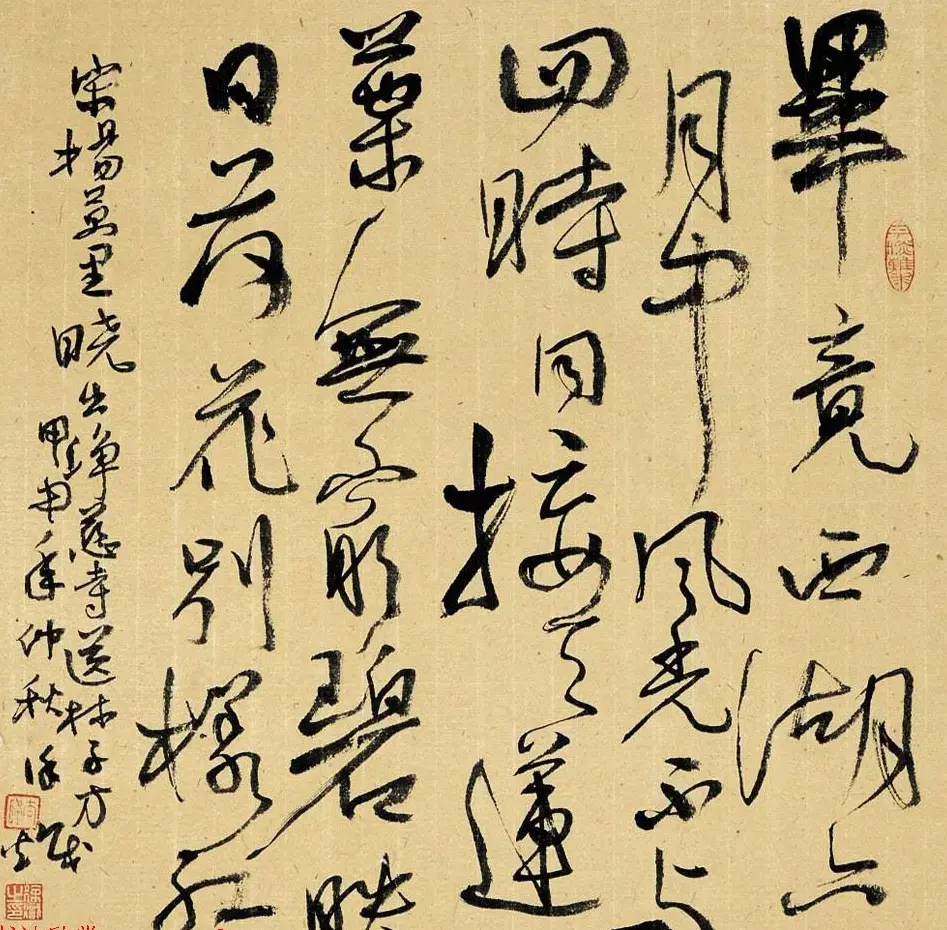 畢竟西湖六
月中風光不与
四時同接天蓮
葉無窮碧映
日荷花别樣紅
宋楊萬里曉出淨慈寺送林子方
甲申年仲秋徐